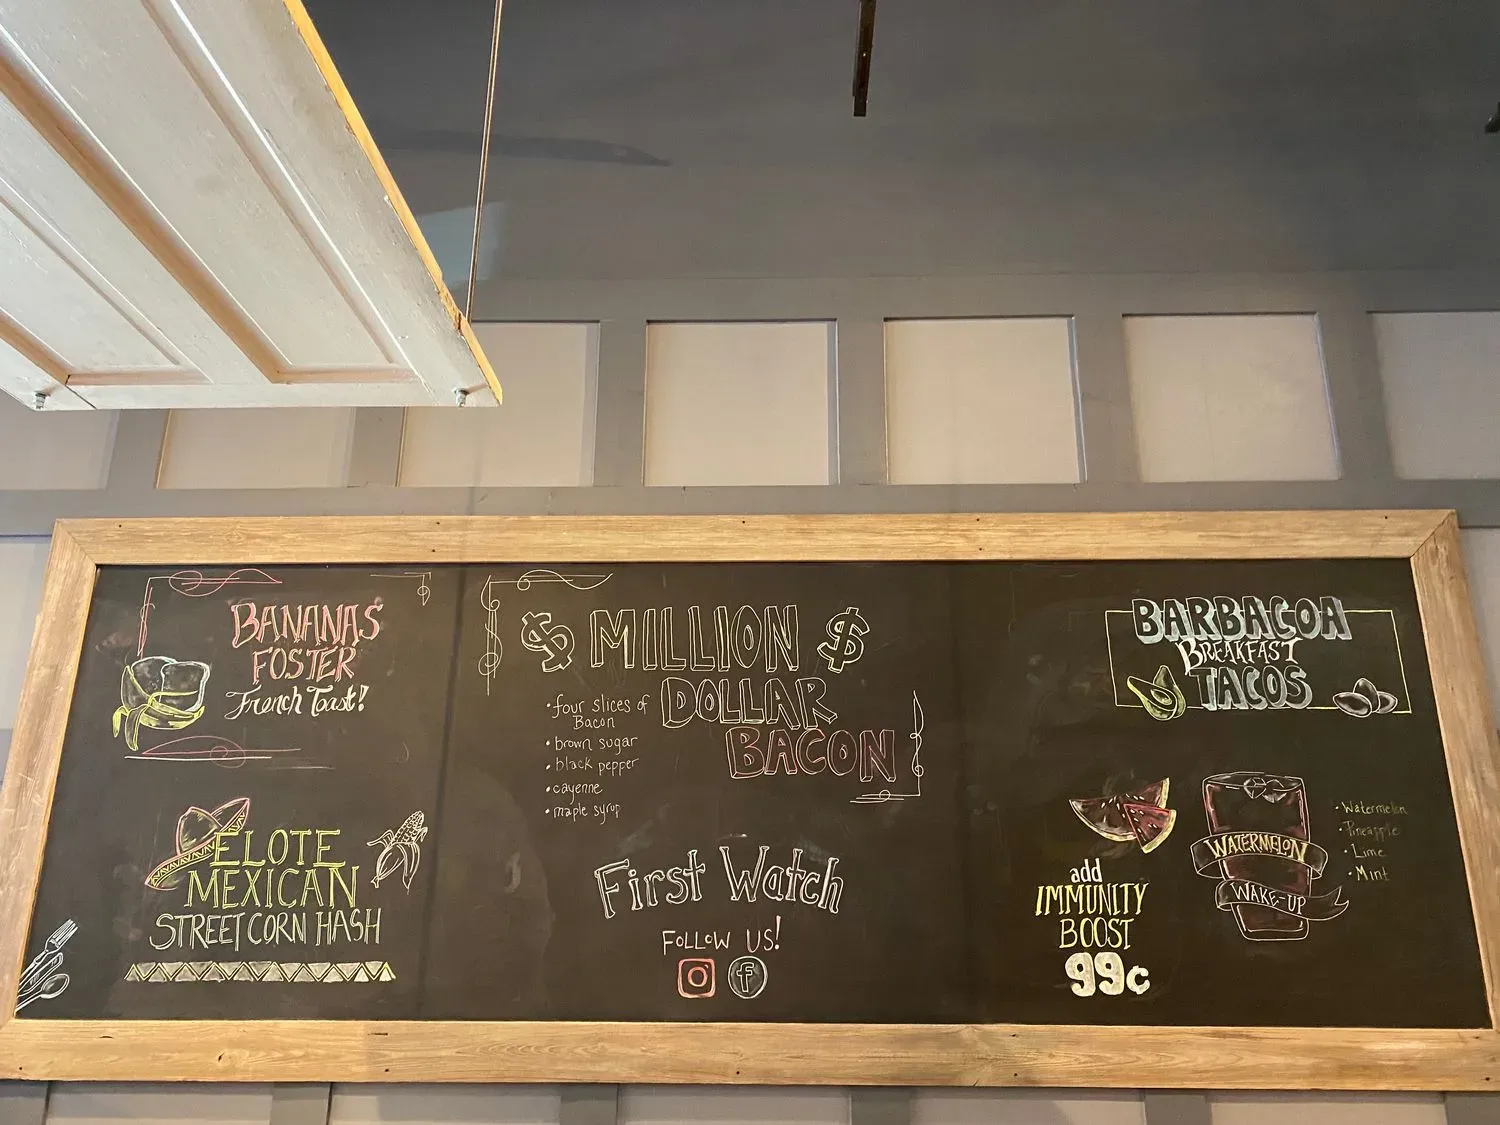 BANANAS
FOSTER
French Toast!
ELOTE
MEXICAN
STREET CORN HASH
$ MILLION $
DOLLAR
BACON
• four slices of
Bacon
• brown sugar
• black pepper
• cayenne
• maple syrup
First Watch
FOLLOW US!
f
BARBACOA
BREAKFAST
TACOS
add
IMMUNITY
BOOST
99¢
WATERMELON
WAKE-UP
• Watermelon
• Pineapple
• Lime
• Mint